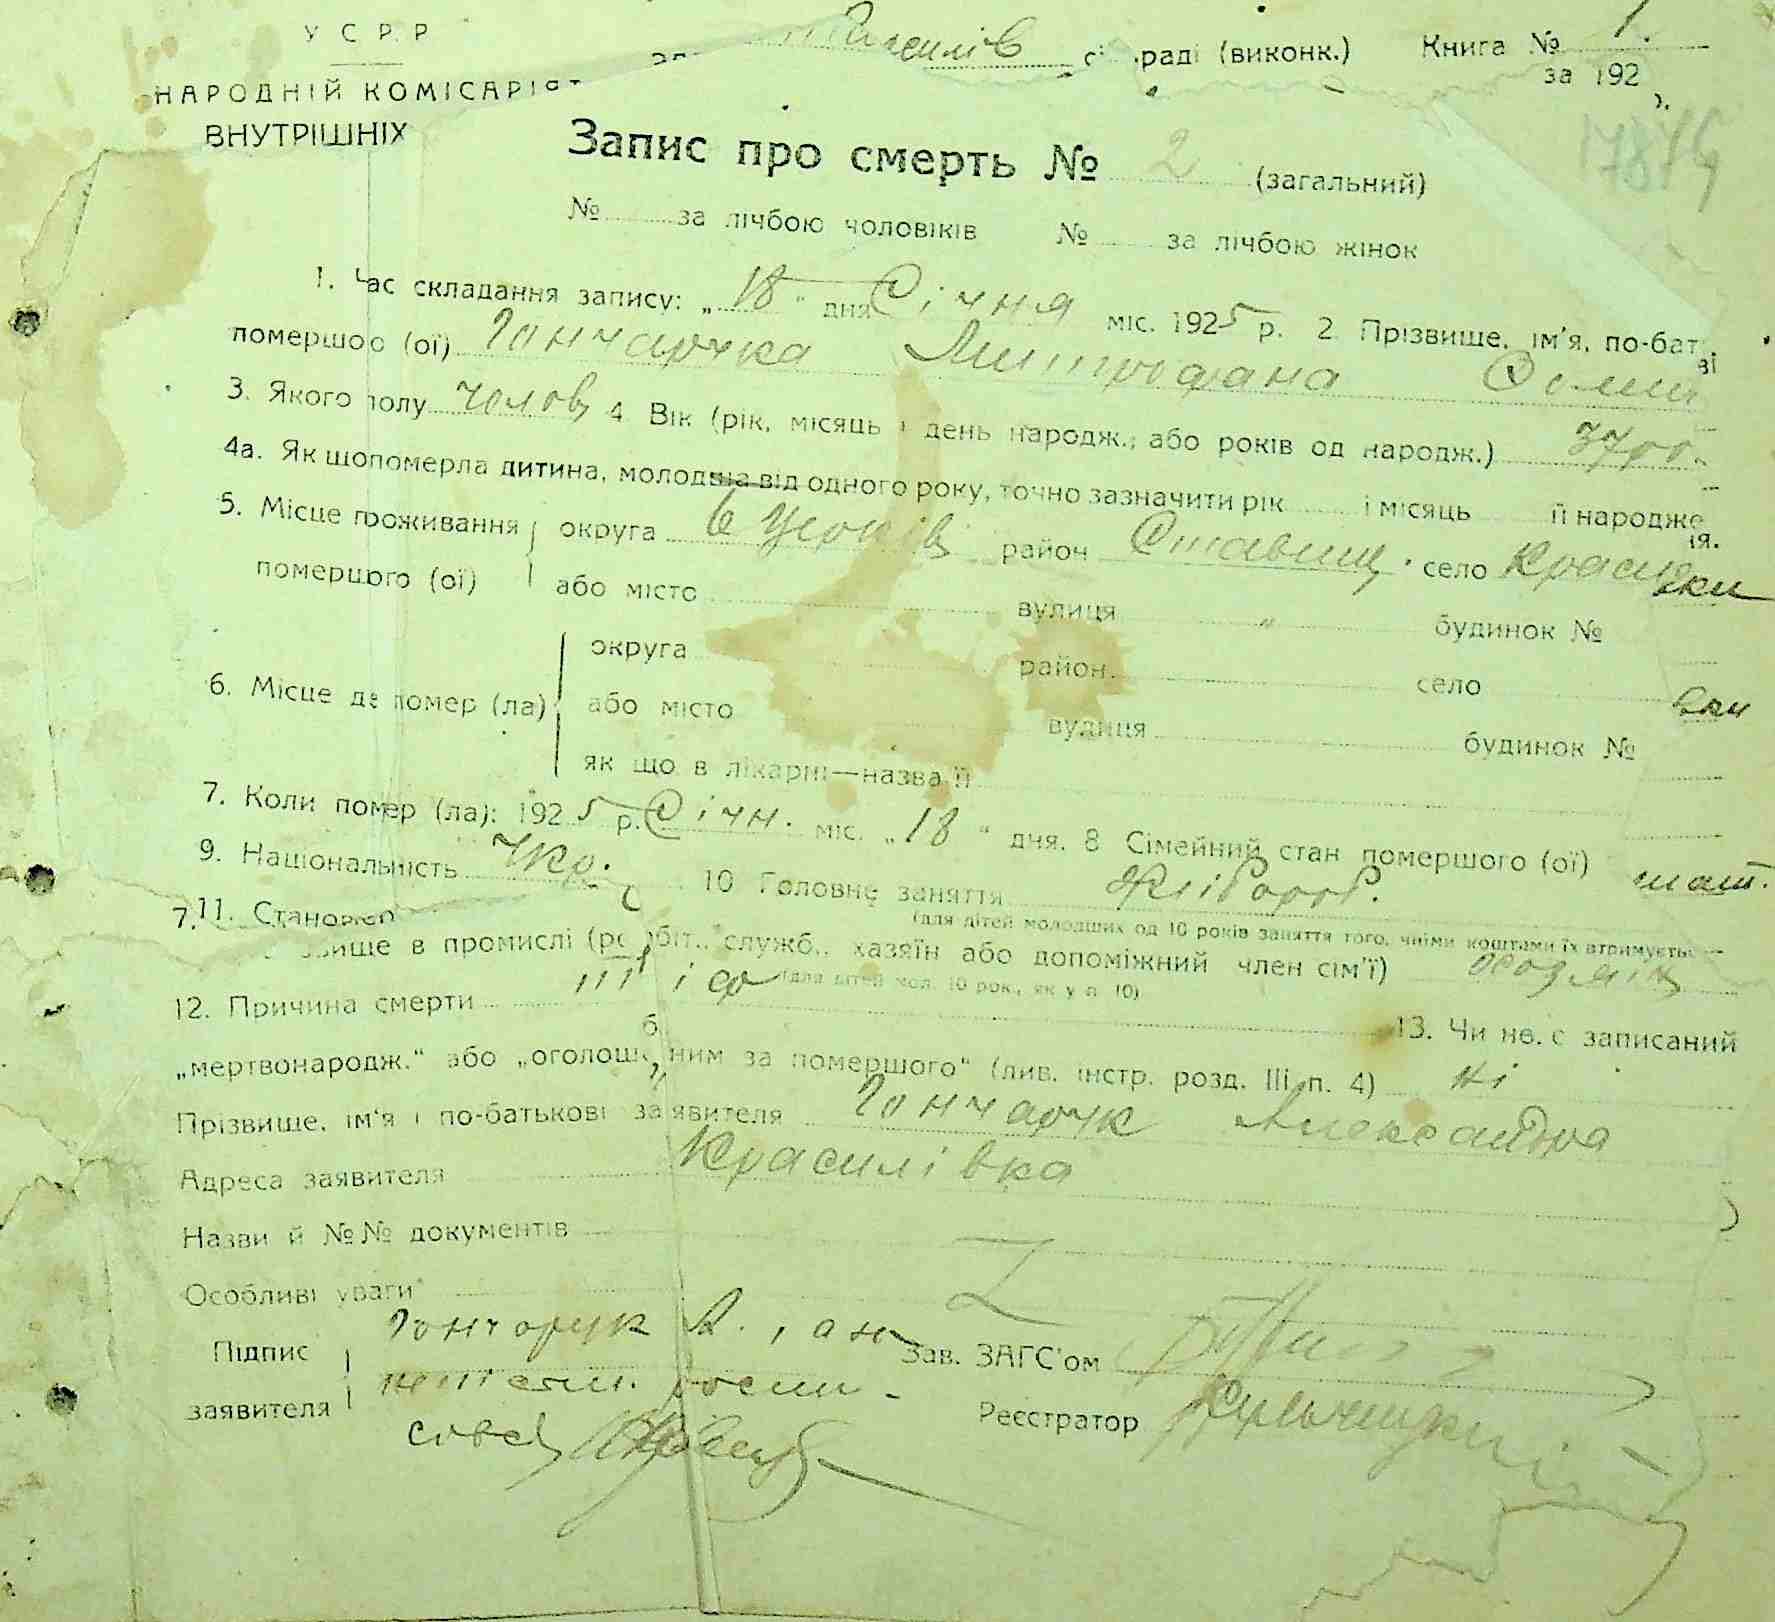 У С Р Р
силів раді (виконк.) Книга № 1.
НАРОДНІЙ КОМІСАРІЯТ за 192
ВНУТРІШНІХ
Запис про смерть № 2 (загальний)
№ за лічбою чоловіків № за лічбою жінок
1. Час складання запису: „18“ дня Січня міс. 1925 р. 2 Прізвище, ім'я, по-бат ві
помершого (ої) Гончарука Митрофана
3. Якого полу чолов 4 Вік (рік, місяць і день народж., або років од народж.) 37
4а. Як що померла дитина, молодша від одного року, точно зазначити рік і місяць її народже ія.
5. Місце проживання округа район Ставищ. село
помершого (ої) або місто вулиця „ будинок №
округа район село
6. Місце де помер (ла) або місто вулиця будинок № вки
як що в лікарні—назва її
7. Коли помер (ла): 1925 р. Січн. міс. „18“ дня. 8 Сімейний стан помершого (ої)
9. Національність Укр. 10 Головне заняття Хлібороб.
(для дітей молодших од 10 років заняття того, чиїми коштами їх втримується—
7. 11. Становище в промислі (робіт., служб., хазяїн або допоміжний член сім'ї)
(для дітей мол. 10 рок., як у п. 10)
12. Причина смерти тіф 13. Чи не є записаний
„мертвонародж.“ або „оголошеним за помершого“ (див. інстр. розд. III п. 4) ні
Прізвище, ім'я і по-батькові заявителя Гончарук Александра
Адреса заявителя Красилівка
Назви й №№ документів
Особливі уваги
Підпис Гончарук А., а Зав. ЗАГС'ом
заявителя Реєстратор